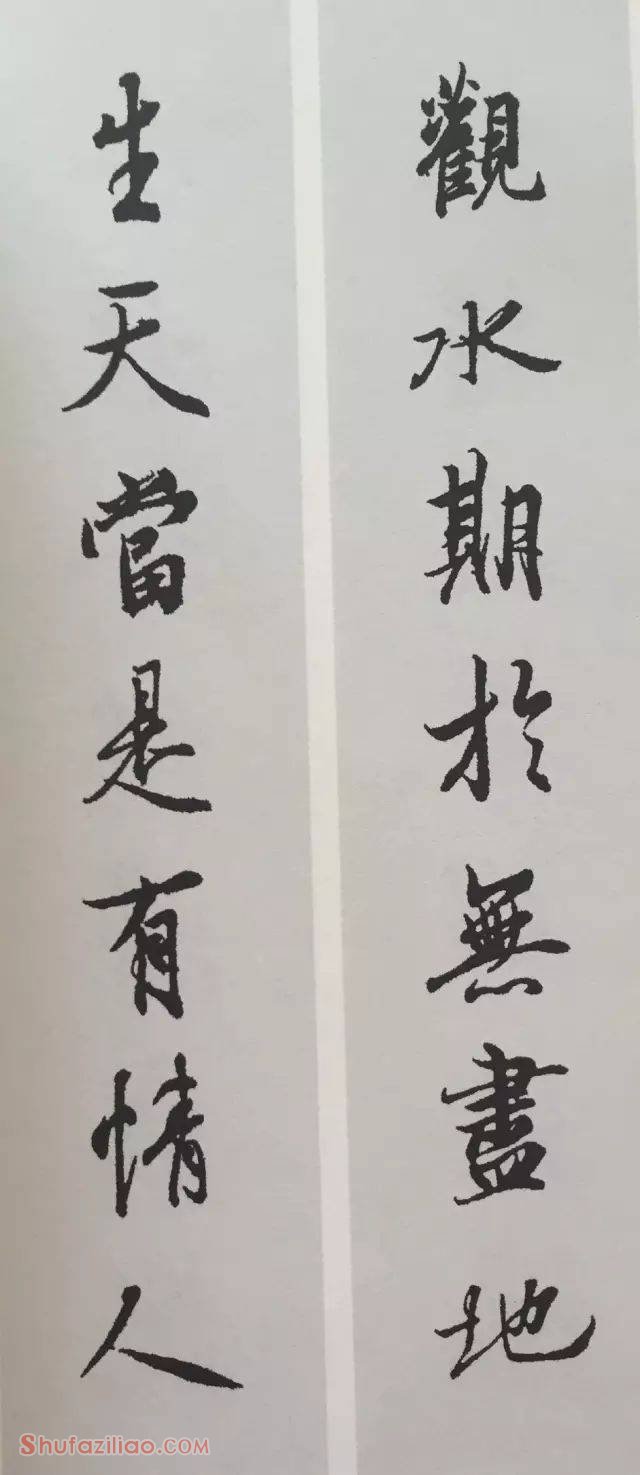 觀水期於無盡地
生天當是有情人
Shufaziliao.COM